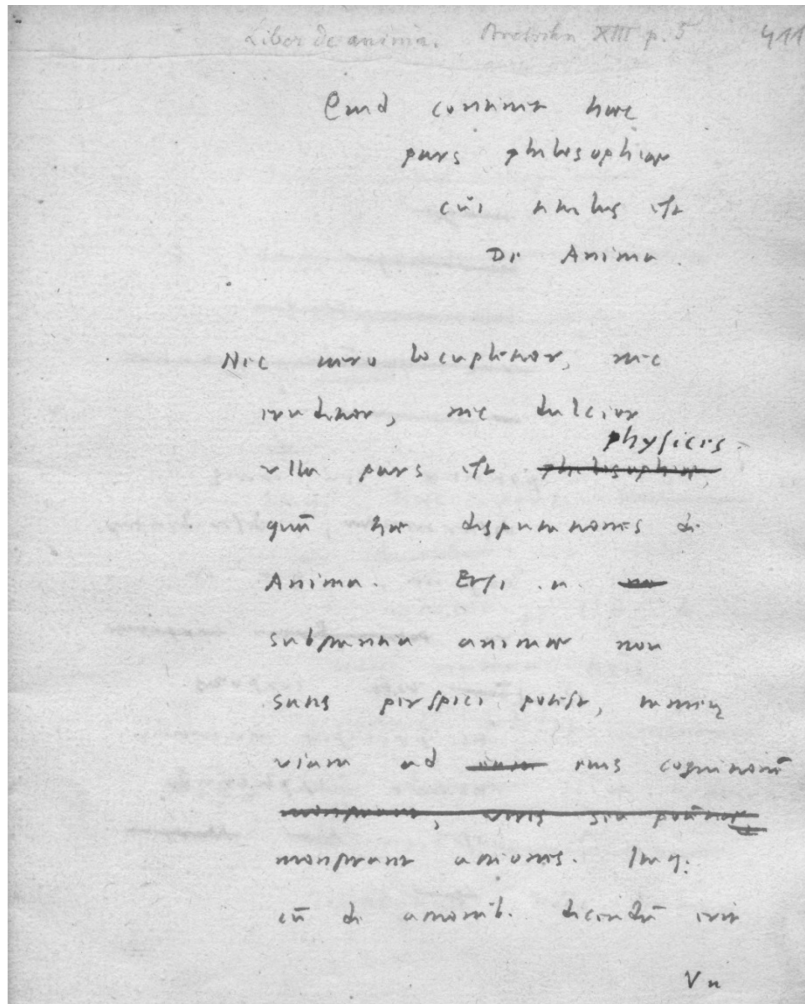 Liber de anima. Bretschn XIII p. 5 411
Quid continet haec
pars philosophiae
cui titulus est
De Anima
Nec vero locupletior, nec
eruditior, nec dulcior
physices
vlla pars est philosophiae,
quā hae disputationes de
Anima. Etsi .n.
substantia animae non
satis perspici potest, tamen
viam ad eius cognitionē
monstrant actiones. Itaq.
cū de actionib. dicendū erit